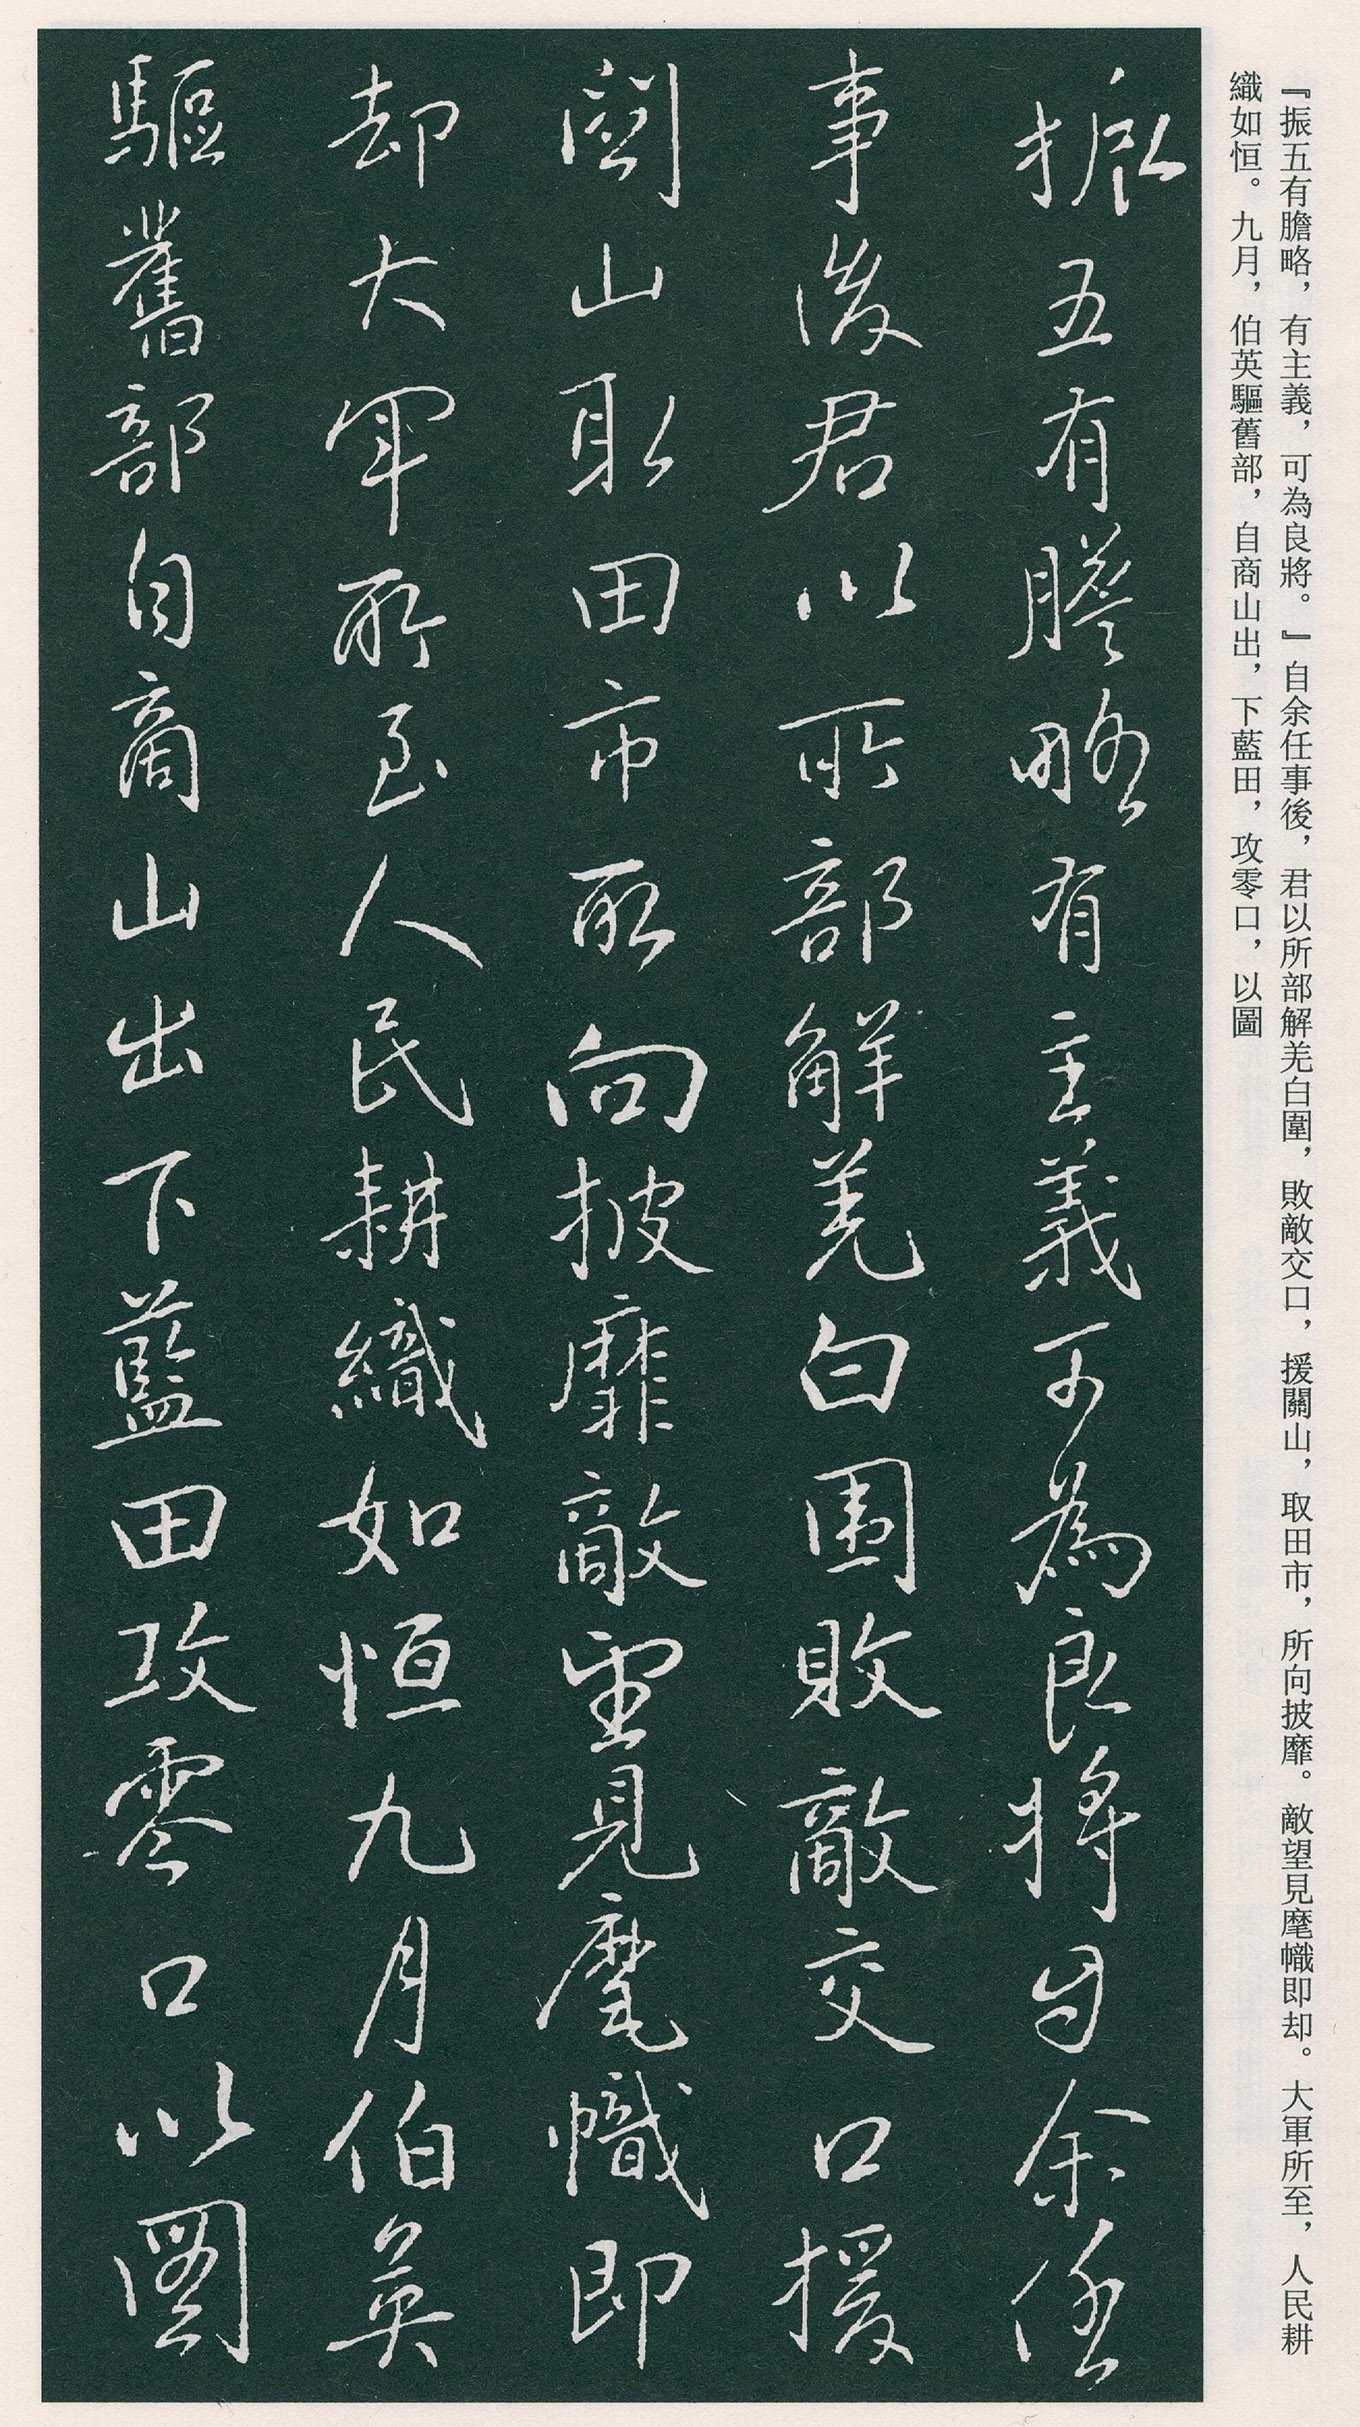 『振五有膽略，有主義，可為良將。』自余任事後，君以所部解羌白圍，敗敵交口，援關山，取田市，所向披靡。敵望見麾幟即却。大軍所至，人民耕
織如恒。九月，伯英驅舊部，自商山出，下藍田，攻零口，以圖
振五有膽略有主義可為良將自余任
事後君以所部解羌白围敗敵交口援
関山取田市所向披靡敵望見麾幟即
却大軍所至人民耕織如恒九月伯英
驅舊部自商山出下藍田攻零口以圖